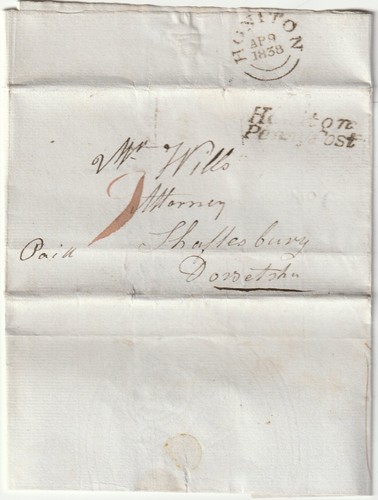 HONITON
AP 9
1838
Honiton
Penny Post
Mr. Wills
Attorney
Shaftesbury
Paid
Dorsetshr